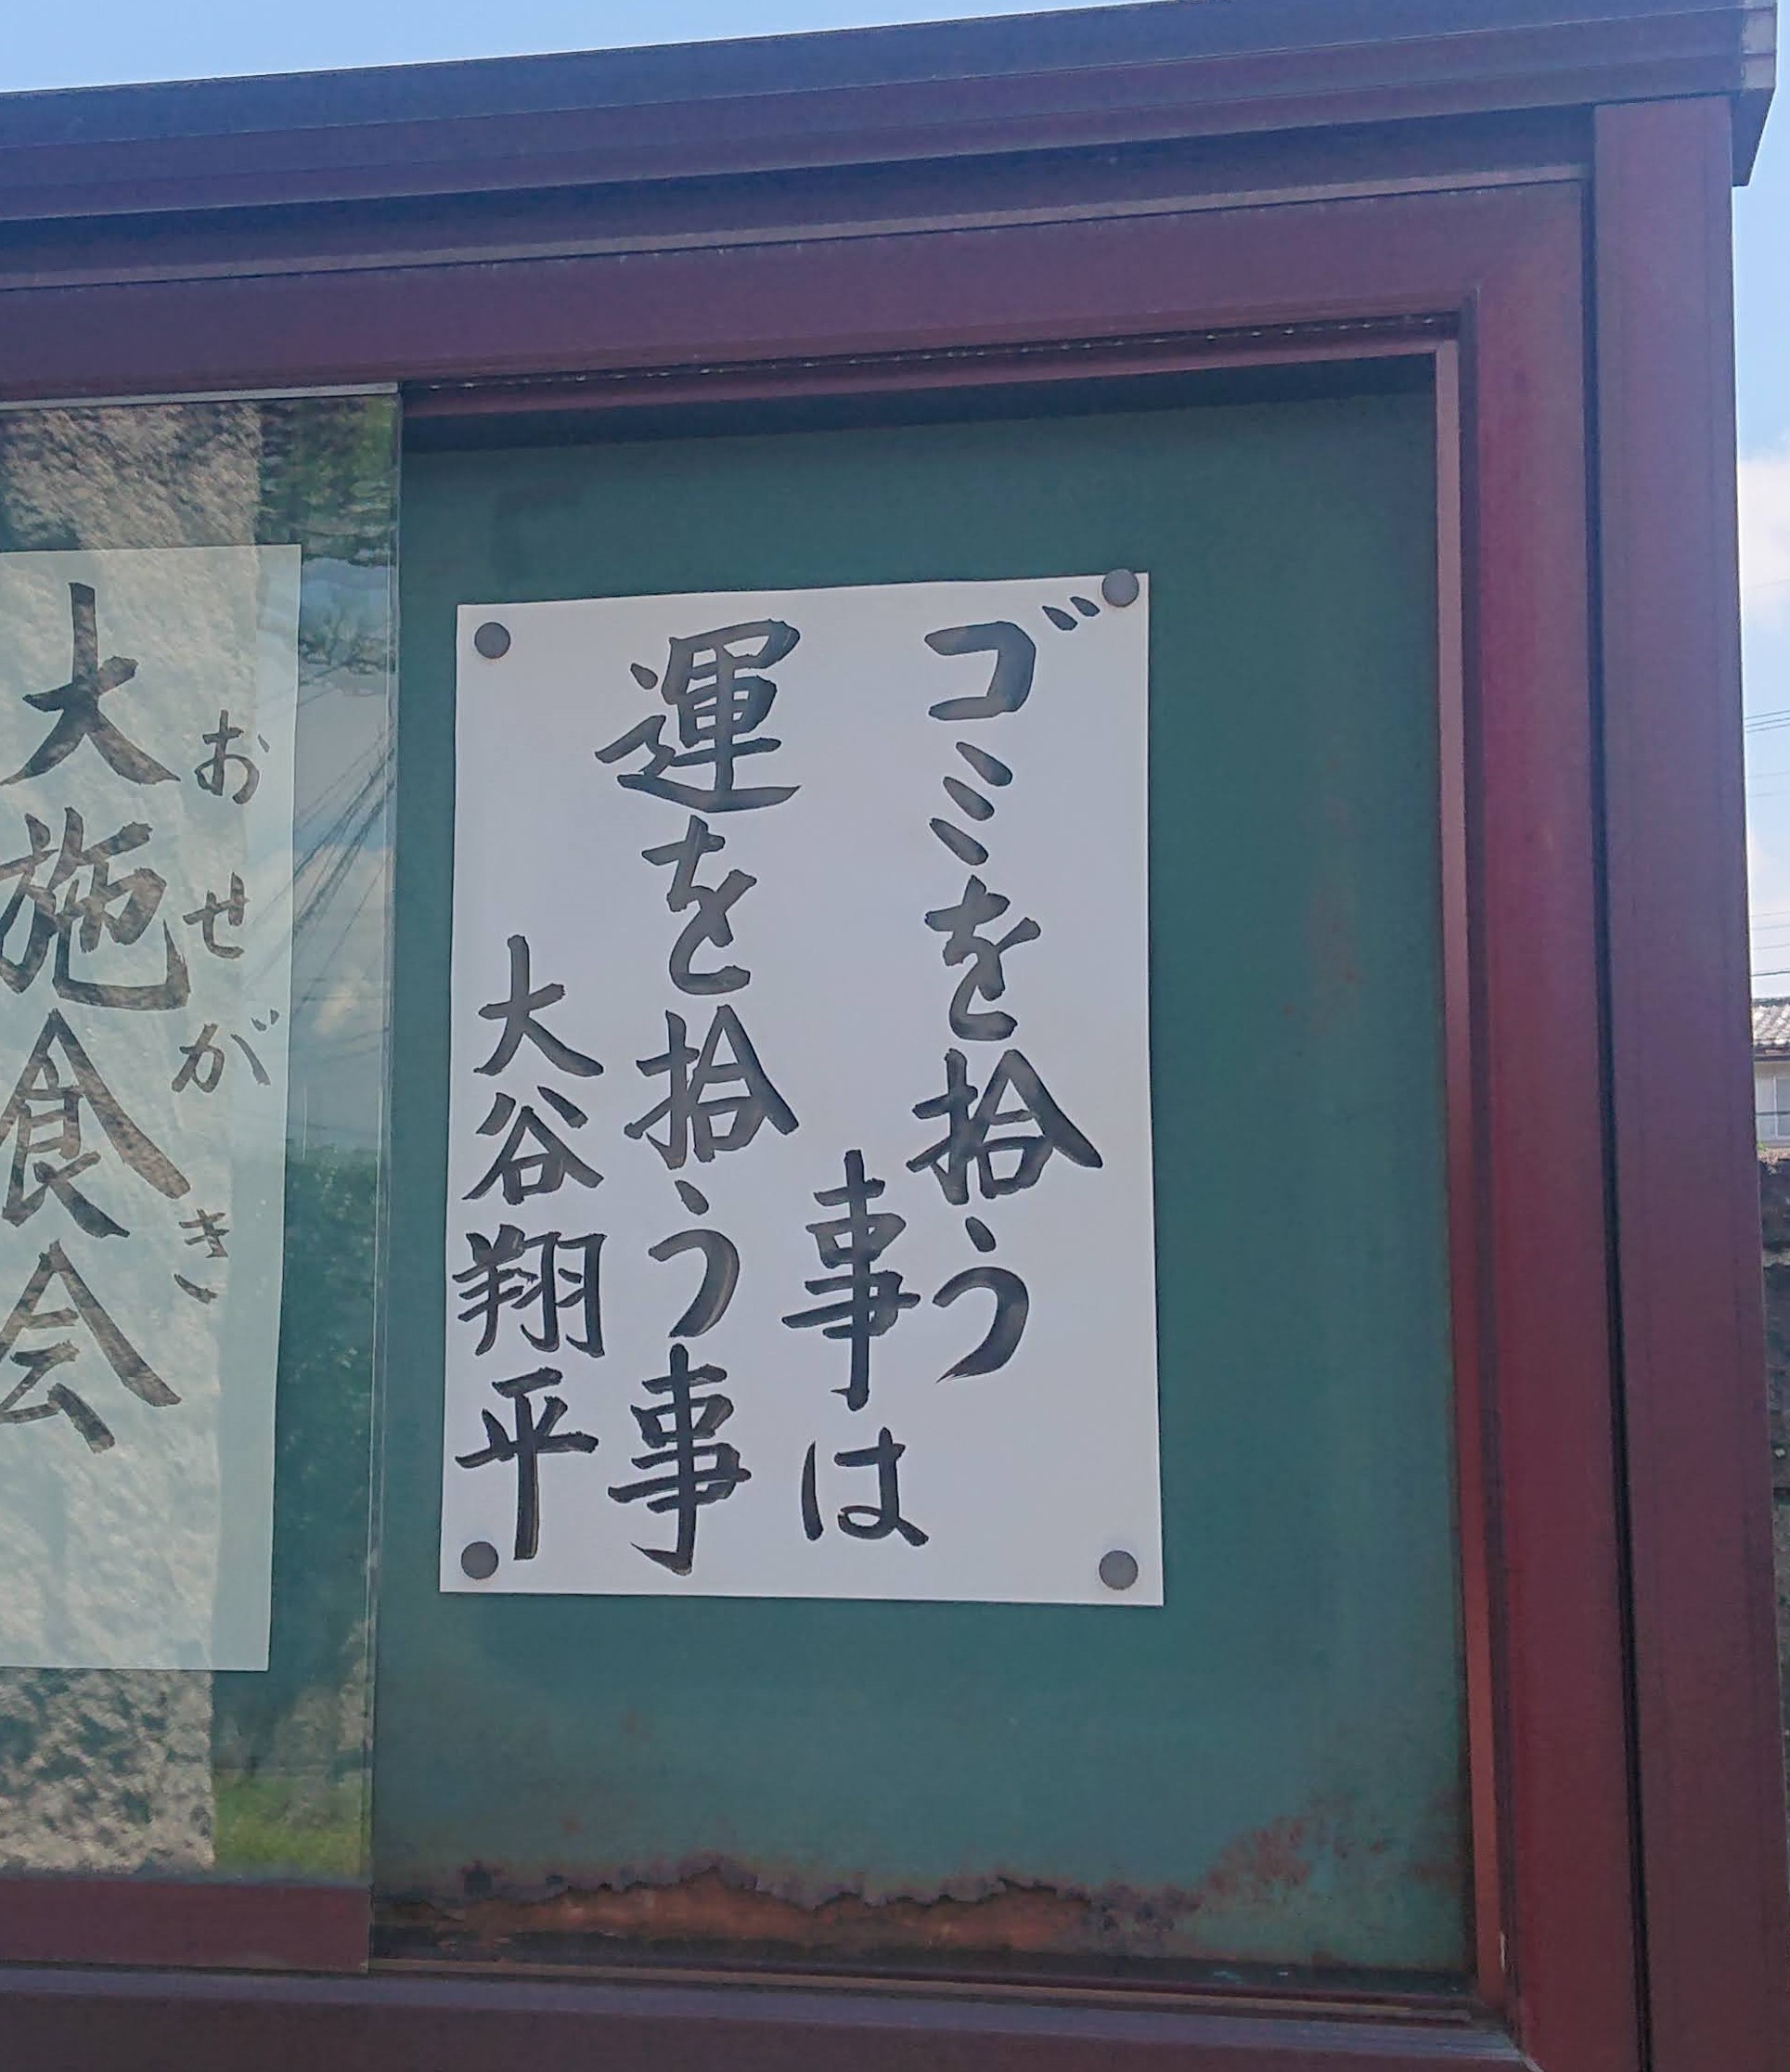 ゴミを拾う
事は
運を拾う事
大谷翔平
おせがき
大施食会